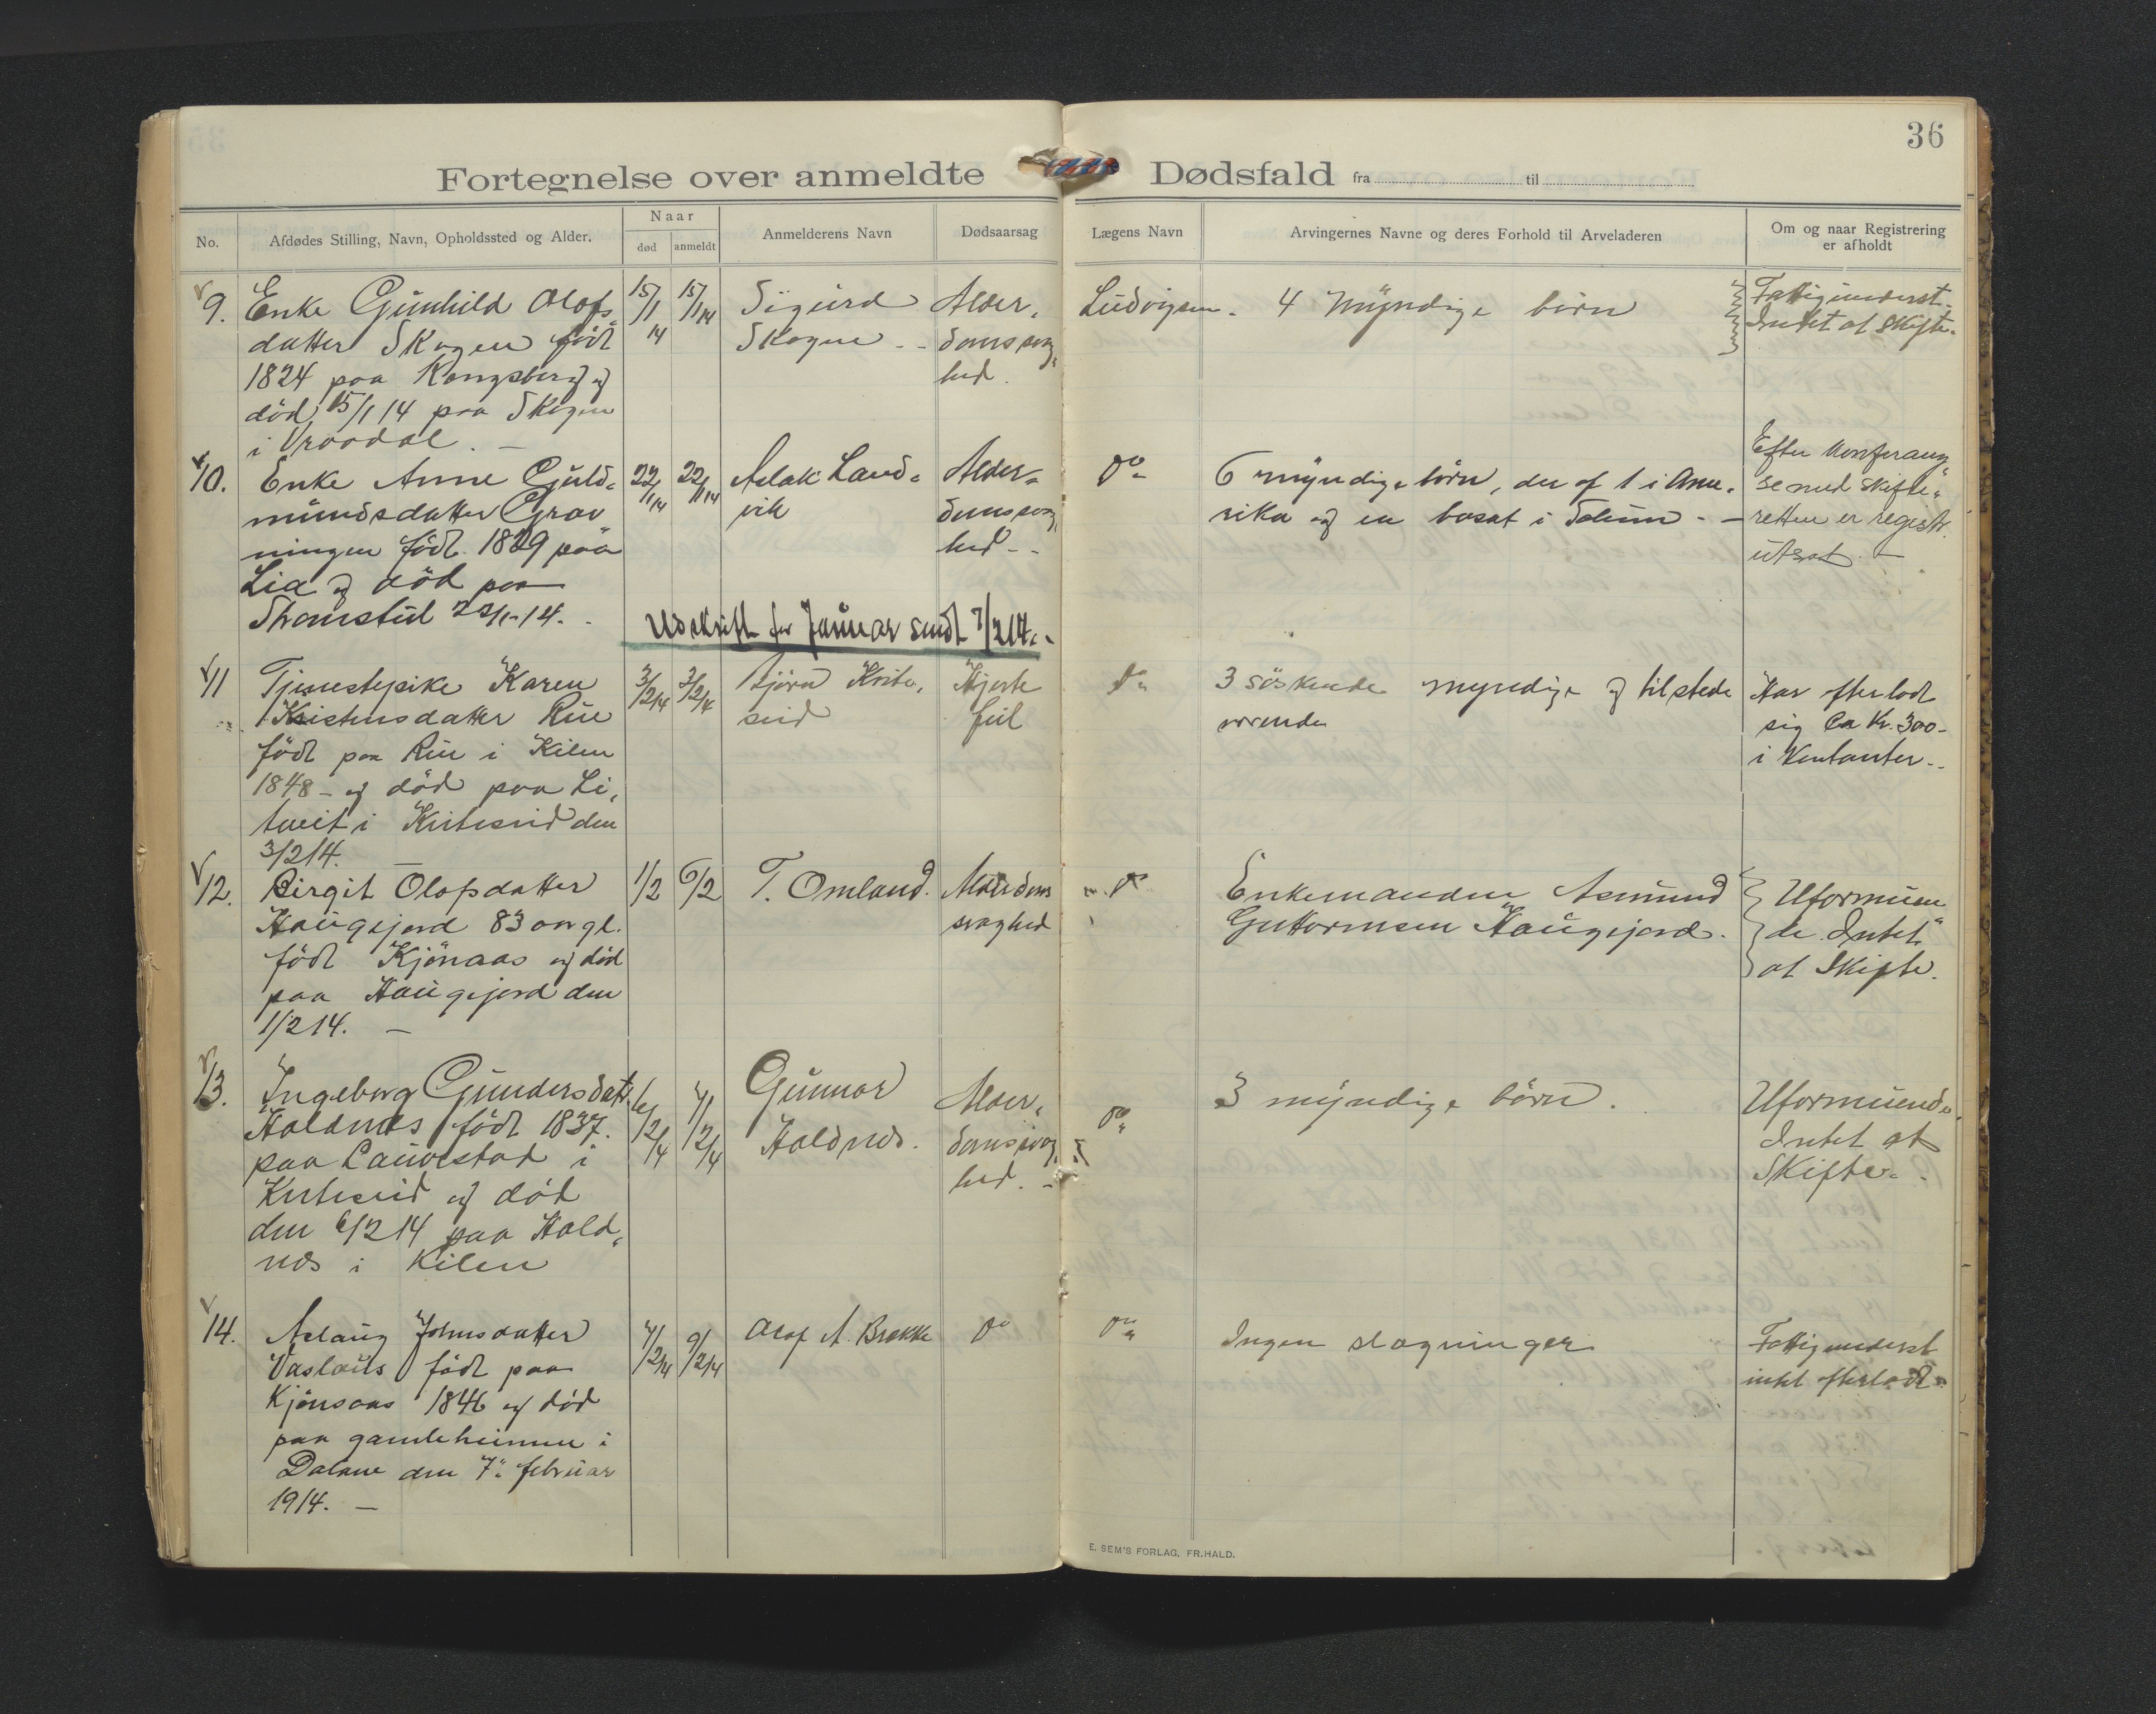 36
Fortegnelse over anmeldte Dødsfald fra til
No.
Afdødes Stilling, Navn, Opholdssted og Alder.
Naar
død
anmeldt
Anmelderens Navn
Dødsaarsag
Lægens Navn
Arvingernes Navne og deres Forhold til Arveladeren
Om og naar Registrering
er afholdt
9.
Enke Gunhild Olofs-
datter Skogen født
1824 paa Kongsberg og
död 15/1 14 paa Skogen
i Vraadal. -
15/1 14
15/1 14
Sigurd
Skogen
Alder-
domssvag-
hed.
Ludvigsen.
4 myndige börn
Fattigunderst.
Intet at Skifte.
10.
Enke Anne Guld-
mundsdatter Grav
ningen født 1829 paa
Lia og död paa
22/1-14.
22/1 14
22/1 14
Aslak Land-
vik
Alder-
domssvag-
hed
Do
6 myndige börn, der af 1 i Ame-
rika og en bosat i Solum
Efter Konferang
se med Skifte-
retten er registr.
utsat. -
Udskrift for Januar sendt 7/2 14.
11
Tjenestepike Karen
Kristensdatter Rue
født paa Rue i Kilen
1848 - og död paa Li-
tveit i Kviteseid den
3/2 14. -
3/2 14
3/2 14
Björn Kvite-
seid
Hjerte
feil
Do
3 söskende myndige og tilstede
værende
Har efterladt
sig Ca Kr. 300-
i Kontanter.
12.
Birgit Olofsdatter
Haugejord 83 aar gl.
født Kjönaas og död
paa Haugejord den
1/2 14. -
1/2
6/2
T. Omland.
Alderdoms
svaghed
Do
Enkemanden Asmund
Guttormsen Haugejord.
Uformuen
de. Intet
at Skifte.
13.
Ingeborg Gundersdatt.
Haldnes født 1837.
paa Lauvstad i
Kviteseid og död
den 6/2 14 paa Hald-
nes i Kilen
6/2 14
7/2 14
Gunnar
Haldnes.
Alder-
domssvag-
hed.
Do
3 myndige börn.
Uformuende.
Intet at
Skifte.
14.
Aslaug Johnsdatter
Vaslaus født paa
Kjönaas 1846 og död
paa gamleheimen i
Dalane den 7. februar
1914. -
7/2 14
9/2 14
Olaf A. Brekke
Do
Do
Ingen slægninger
Fattigunderst
intet efterladt.
E. SEM'S FORLAG, FR.HALD.